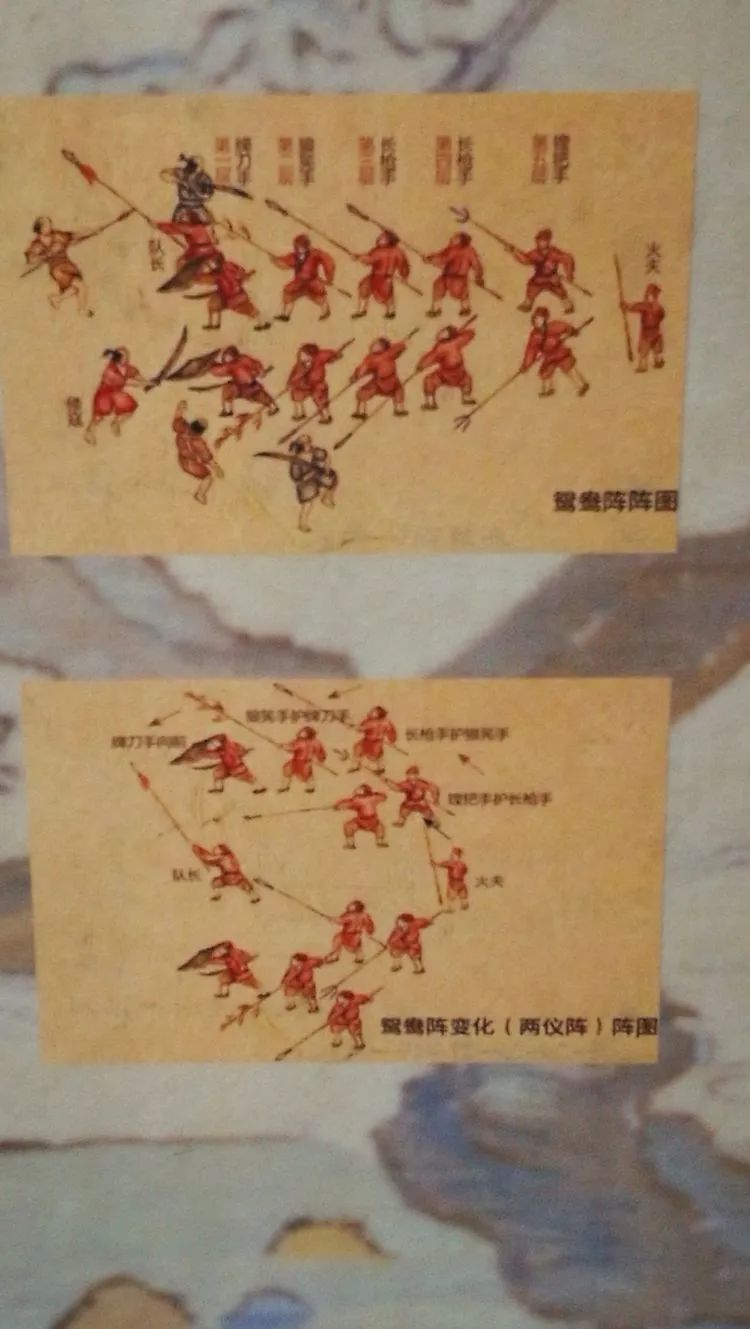 第一层 牌刀手
第二层 狼筅手
第三层 长枪手
第四层 长枪手
第五层 镗把手
队长
火夫
倭寇
鸳鸯阵阵图
狼筅手护牌刀手
牌刀手向前
长枪手护狼筅手
镗把手护长枪手
队长
火夫
鸳鸯阵变化（两仪阵）阵图